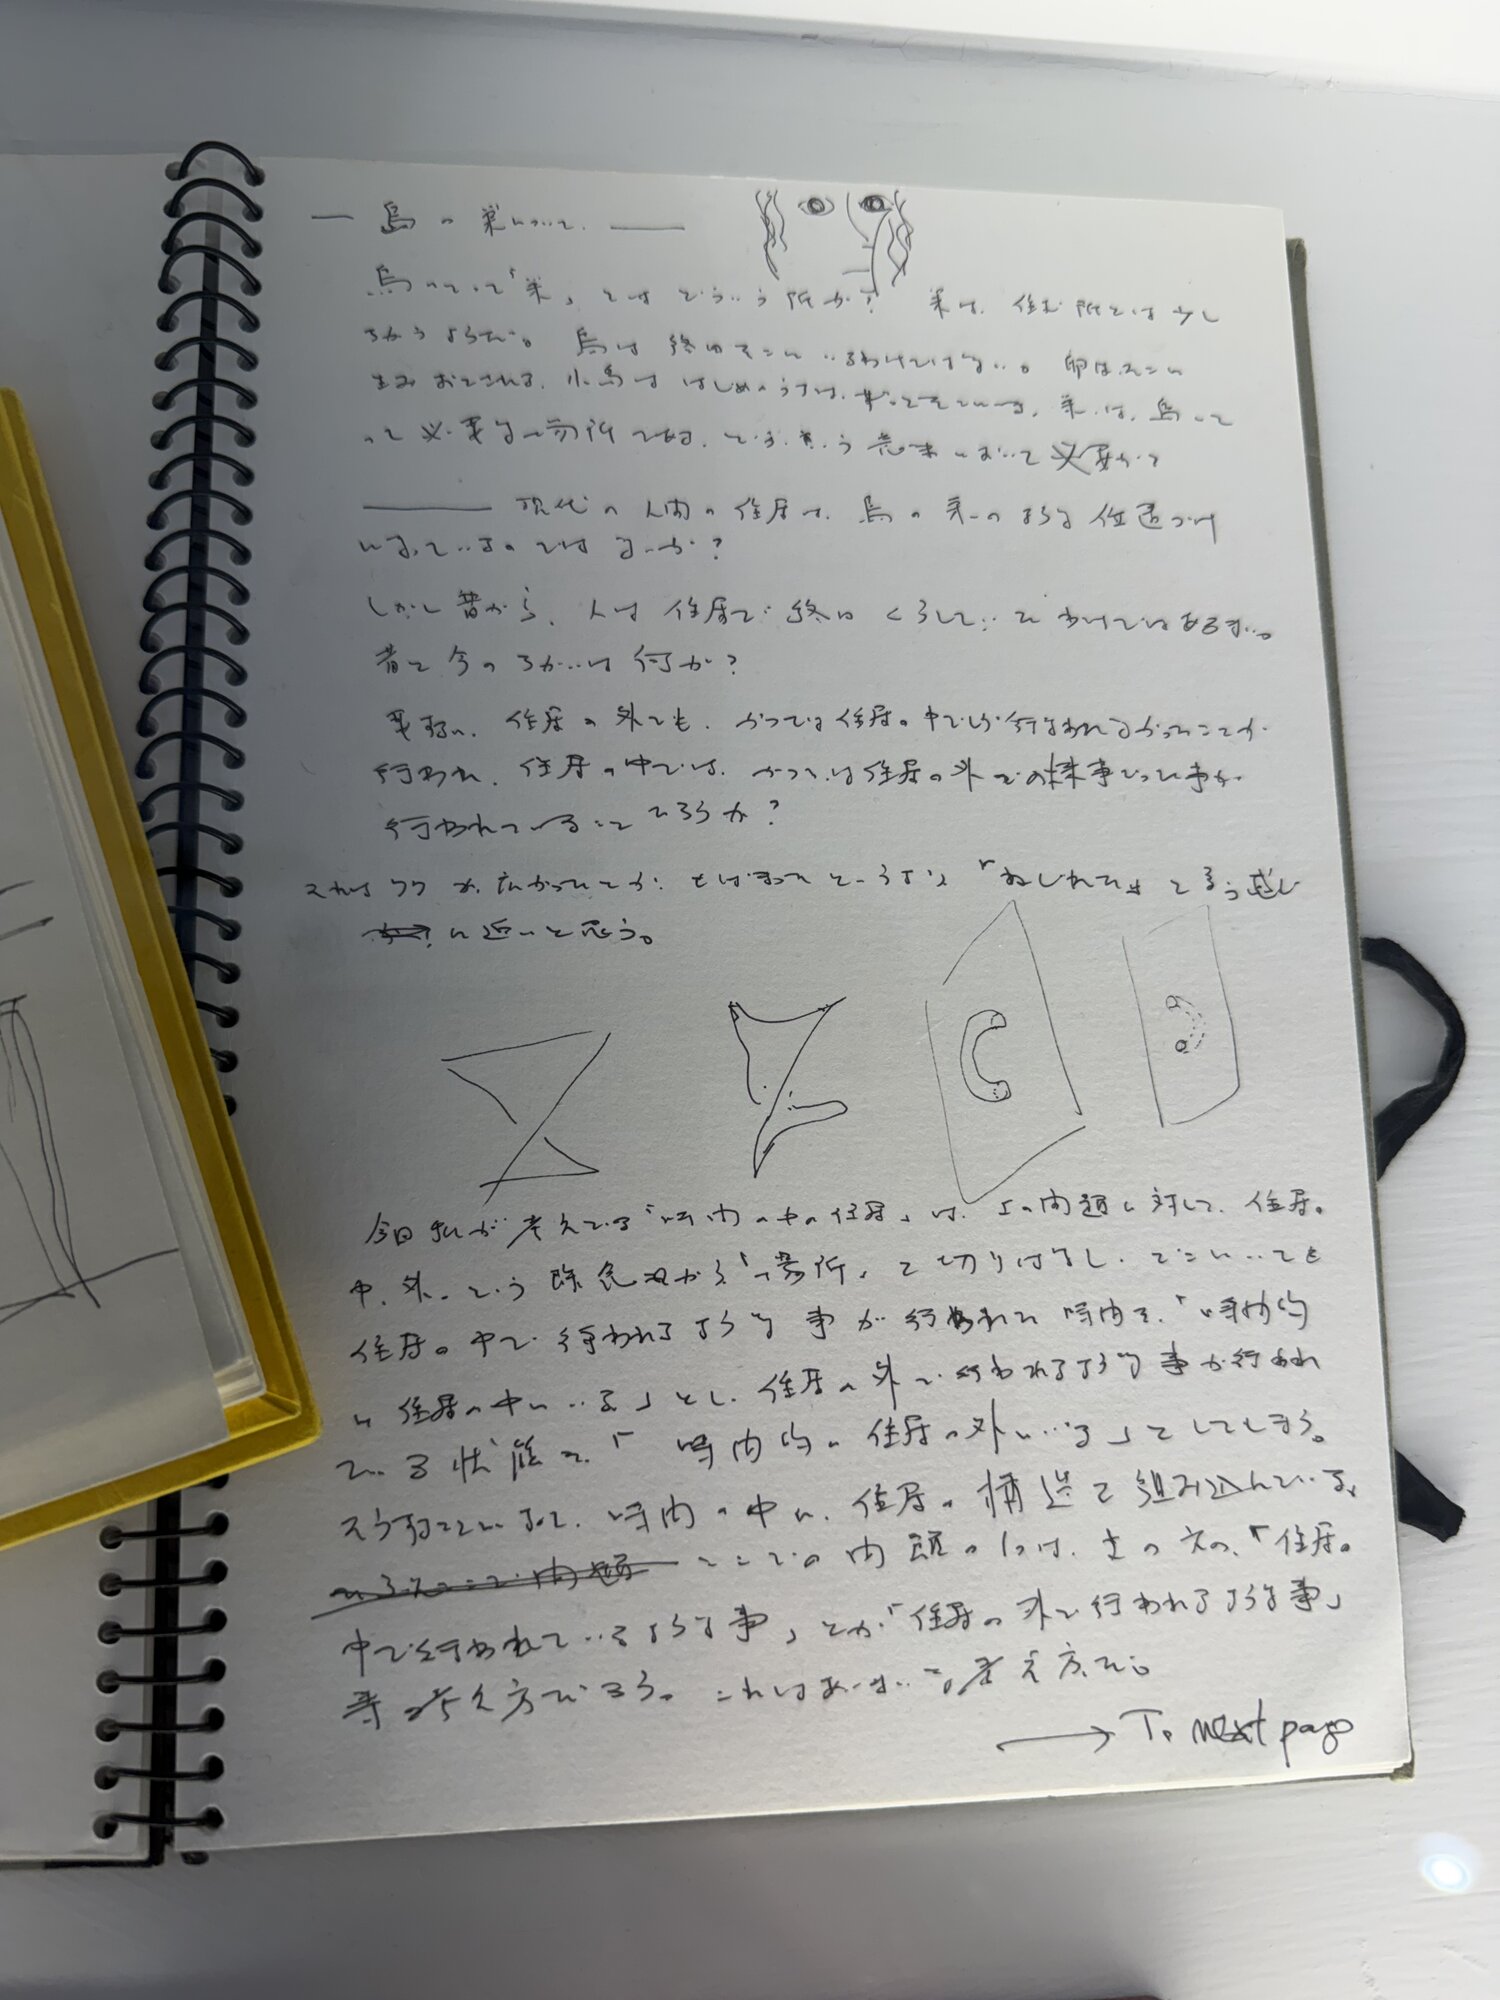 ― 鳥の巣について. ―
鳥にとって「巣」とはどういう所か? 巣は、住む所とは少し
ちがうようだ。鳥は終日そこにいるわけではない。卵はそこに
生みおとされる、小鳥ははじめのうちは、ずっとそこにいる、巣は、鳥にと
って必要な場所である、とか いう意味において必要かつ
―― 現代の人間の住居は、鳥の巣のような位置づけ
になっているのではないか?
しかし昔から、人は住居で終日くらしていたわけではあるまい。
昔と今のちがいは何か?
要するに、住居の外でも、かつては住居の中でしか行なわれなかったことが
行われ、住居の中では、かつては住居の外での 事だった事が
行われていることだろうか?
それはワクが広がったとか、せばまったというより「ねじれた」という感じ
に近いと思う。
今日私が考えている「時間の中の住居」は、この問題に対して、住居の
中、外、という概念から「場所」を切りはなし、どこにいても
住居の中で行われるような事が行われた時間を、「時間的
に住居の中にいる」とし、住居の外で行われるような事が行われ
ている状態を、「時間的に住居の外にいる」としてしまう。
そうすることによって、時間の中に、住居の構造を組み込んでいる。
ここでの問題の1つは、その「住居の
中で行われているような事」とか「住居の外で行われるような事」
の考え方だろう。これはあいまいな考え方だ。
→ To next page